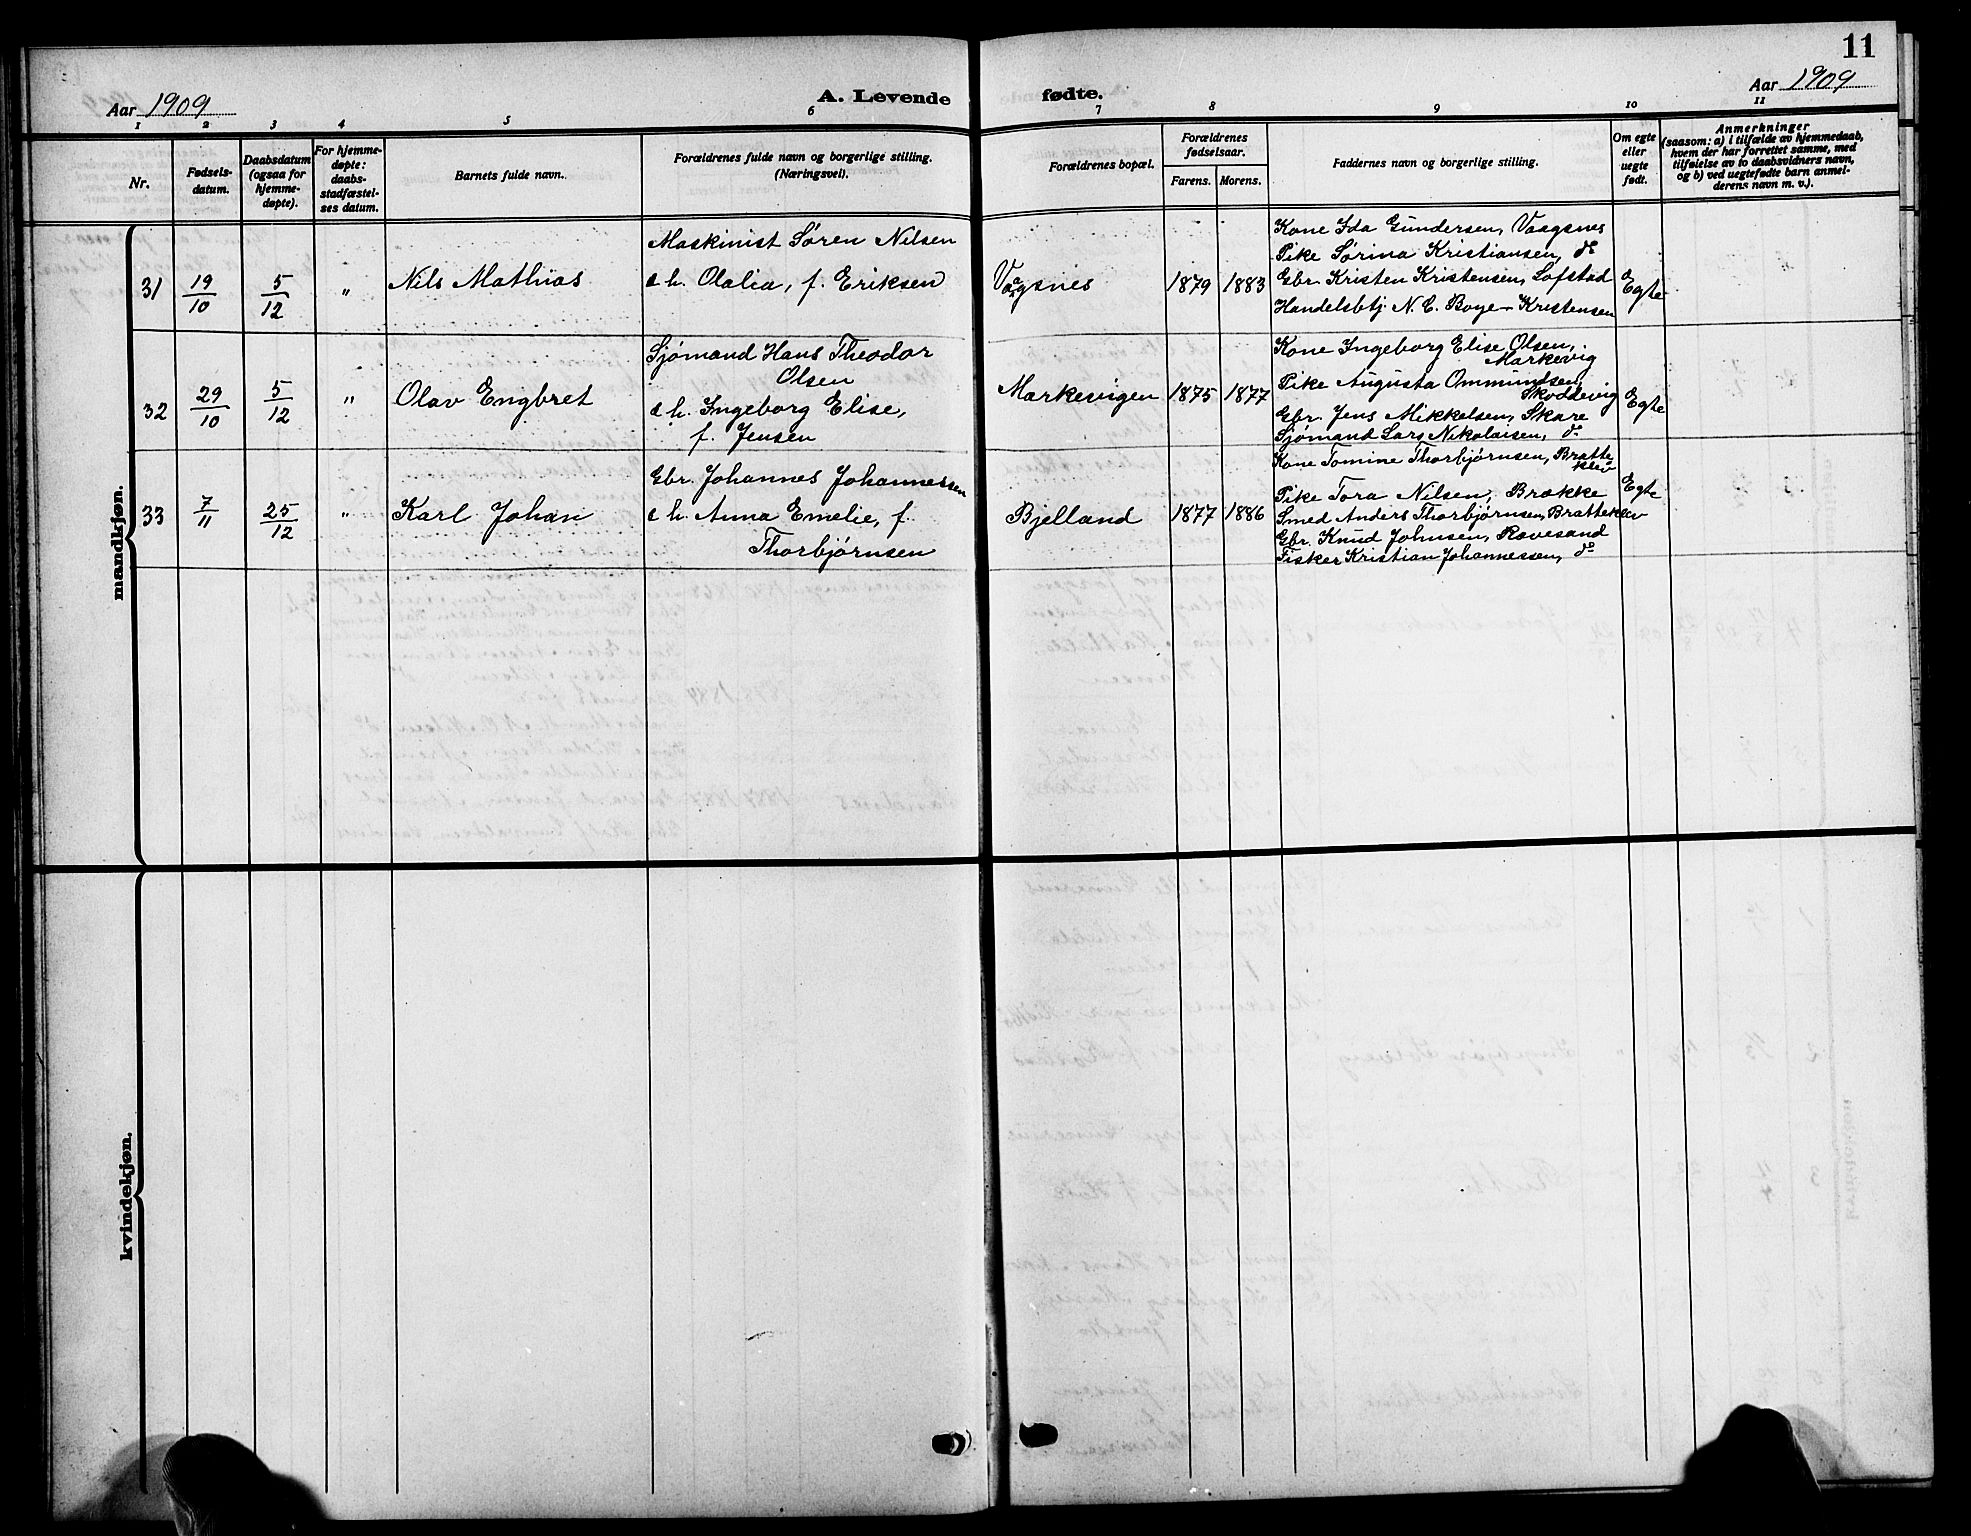 11
Aar 1909
A. Levende fødte.
Aar 1909
1 2 3 4 5 6 7 8 9 10 11
Nr.
Fødsels-
datum.
Daabsdatum
(ogsaa for
hjemme-
døpte).
For hjemme-
døpte:
daabs-
stadfæstel-
ses datum.
Barnets fulde navn.
Forældrenes fulde navn og borgerlige stilling.
(Næringsvei).
Forældrenes bopæl.
Forældrenes
fødselsaar.
Farens. Morens.
Faddernes navn og borgerlige stilling.
Om egte
eller
uegte
født.
Anmerkninger
(saasom: a) i tilfælde av hjemmedaab,
hvem der har forrettet samme, med
tilføielse av to daabsvidners navn,
og b) ved uegtefødte barn anmel-
derens navn m. v.).
mandkjøn.
31 19/10 5/12 " Nils Mathias
Maskinist Søren Nilsen
& h. Olalia, f. Eriksen
Vaagsnes 1879 1883
Kone Ida Gundersen, Vaagsnes
Pike Sørina Kristiansen, do
Gbr. Kristen Kristensen, Lofstad
Handelsbtj. N. C. Boye-Kristensen
Egte
32 29/10 5/12 " Olav Engbret
Sjømand Hans Theodor
Olsen
& h. Ingeborg Elise,
f. Jensen
Markevigen 1875 1877
Kone Ingeborg Elise Olsen,
Markevig
Pike Augusta Ommundsen,
Skoddevig
Gbr. Jens Mikkelsen, Skare
Sjømand Lars Nikolaisen, do
Egte
33 7/11 25/12 " Karl Johan
Gbr. Johannes Johannessen
& h. Anna Emelie, f.
Thorbjørnsen
Bjelland 1877 1886
Kone Tomine Thorbjørnsen, Bratte
klev
Pike Tora Nilsen, Brække
Smed Anders Thorbjørnsen, Bratteklev
Gbr. Knud Johnsen, Rævesand
Fisker Kristian Johannessen, do
Egte
kvindekjøn.